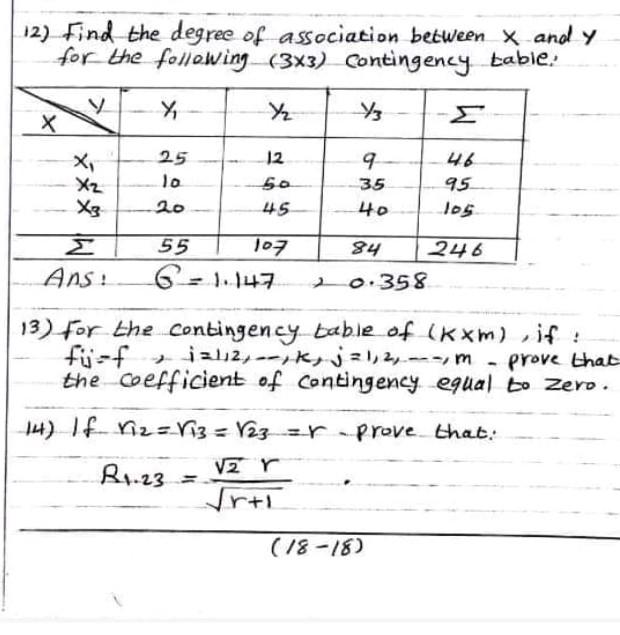 12) Find the degree of association between X and Y
for the following (3x3) Contingency table:
X Y Y₁ Y₂ Y₃ Σ
X₁ 25 12 9 46
X₂ 10 50 35 95
X₃ 20 45 40 105
Σ 55 107 84 246
Ans: G = 1.147 , 0.358
13) For the contingency table of (K×m) , if :
fij=f , i=1,2,--,K, j=1,2,---,m - prove that
the coefficient of contingency equal to zero.
14) If r₁₂ = r₁₃ = r₂₃ = r - prove that:
R₁.₂₃ = √2 r / √r+1 .
(18-18)